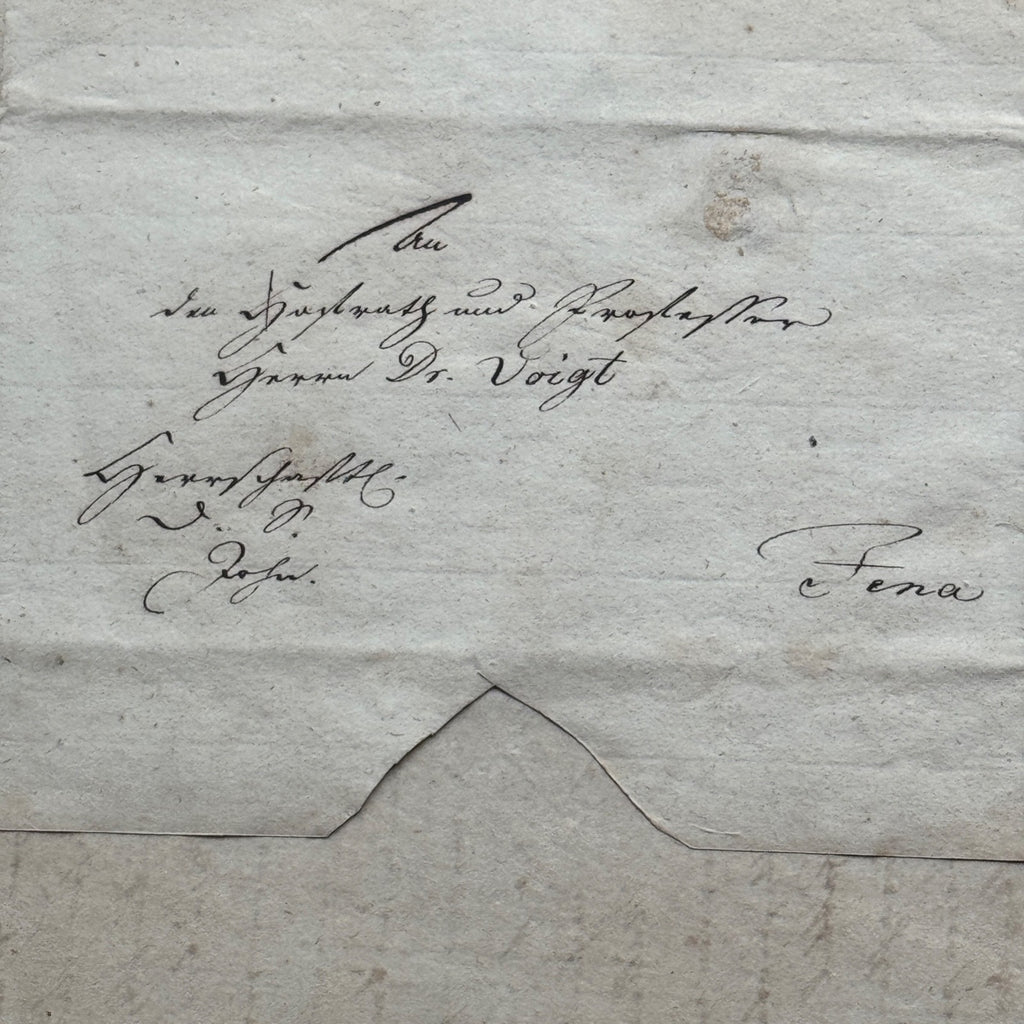 An
den Hofrath und Professor
Herrn Dr. Voigt
Herrschaftl.
D. S.
John.
Jena